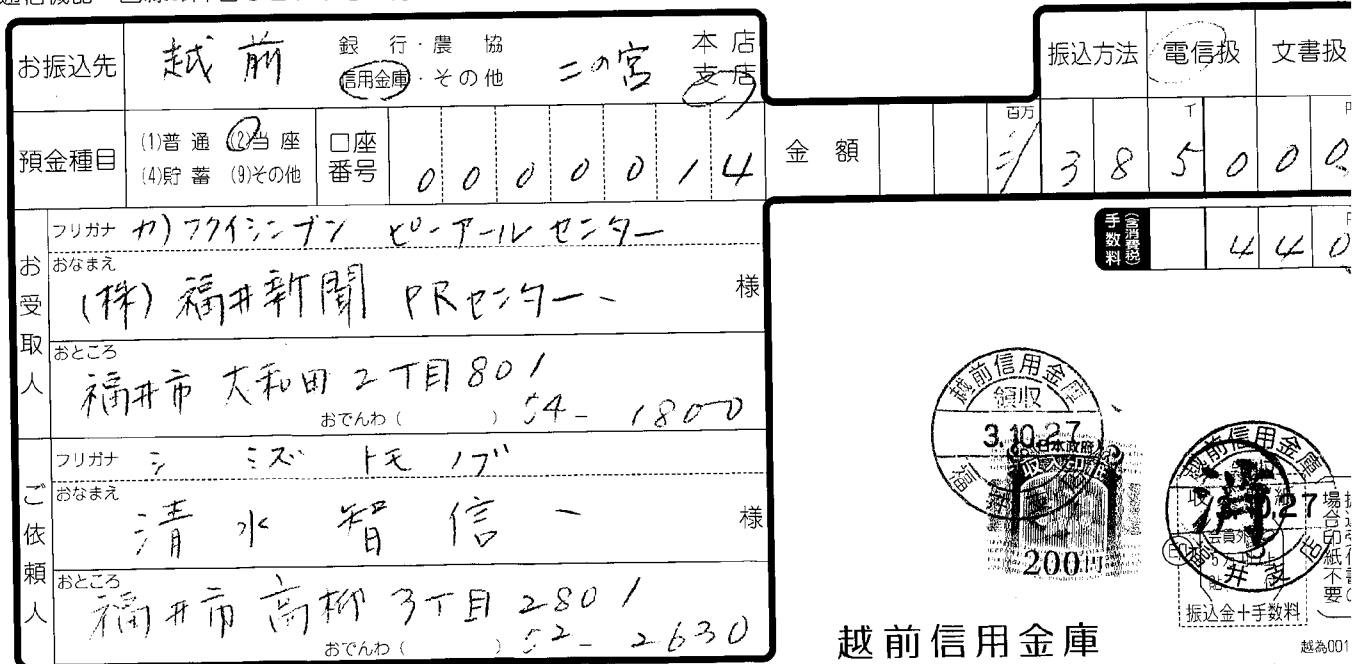 お振込先 越前 銀行・農協 信用金庫・その他 二の宮 本店 支店
振込方法 電信扱 文書扱
預金種目 (1)普通 (2)当座 (4)貯蓄 (9)その他
口座番号 0000014
金額 百万 千 385000
(含消費税) 手数料 440
お受取人
フリガナ カ)フクイシンブン ピーアールセンター
おなまえ (株)福井新聞 PRセンター 様
おところ 福井市大和田2丁目801
おでんわ ( ) 54-1800
ご依頼人
フリガナ シミズ トモノブ
おなまえ 清水智信 様
おところ 福井市高柳3丁目2801
おでんわ ( ) 52-2630
越前信用金庫
領収
3.10.27
日本政府
収入印紙
200円
越前信用金庫
振込金+手数料
越前信用金庫
越為001